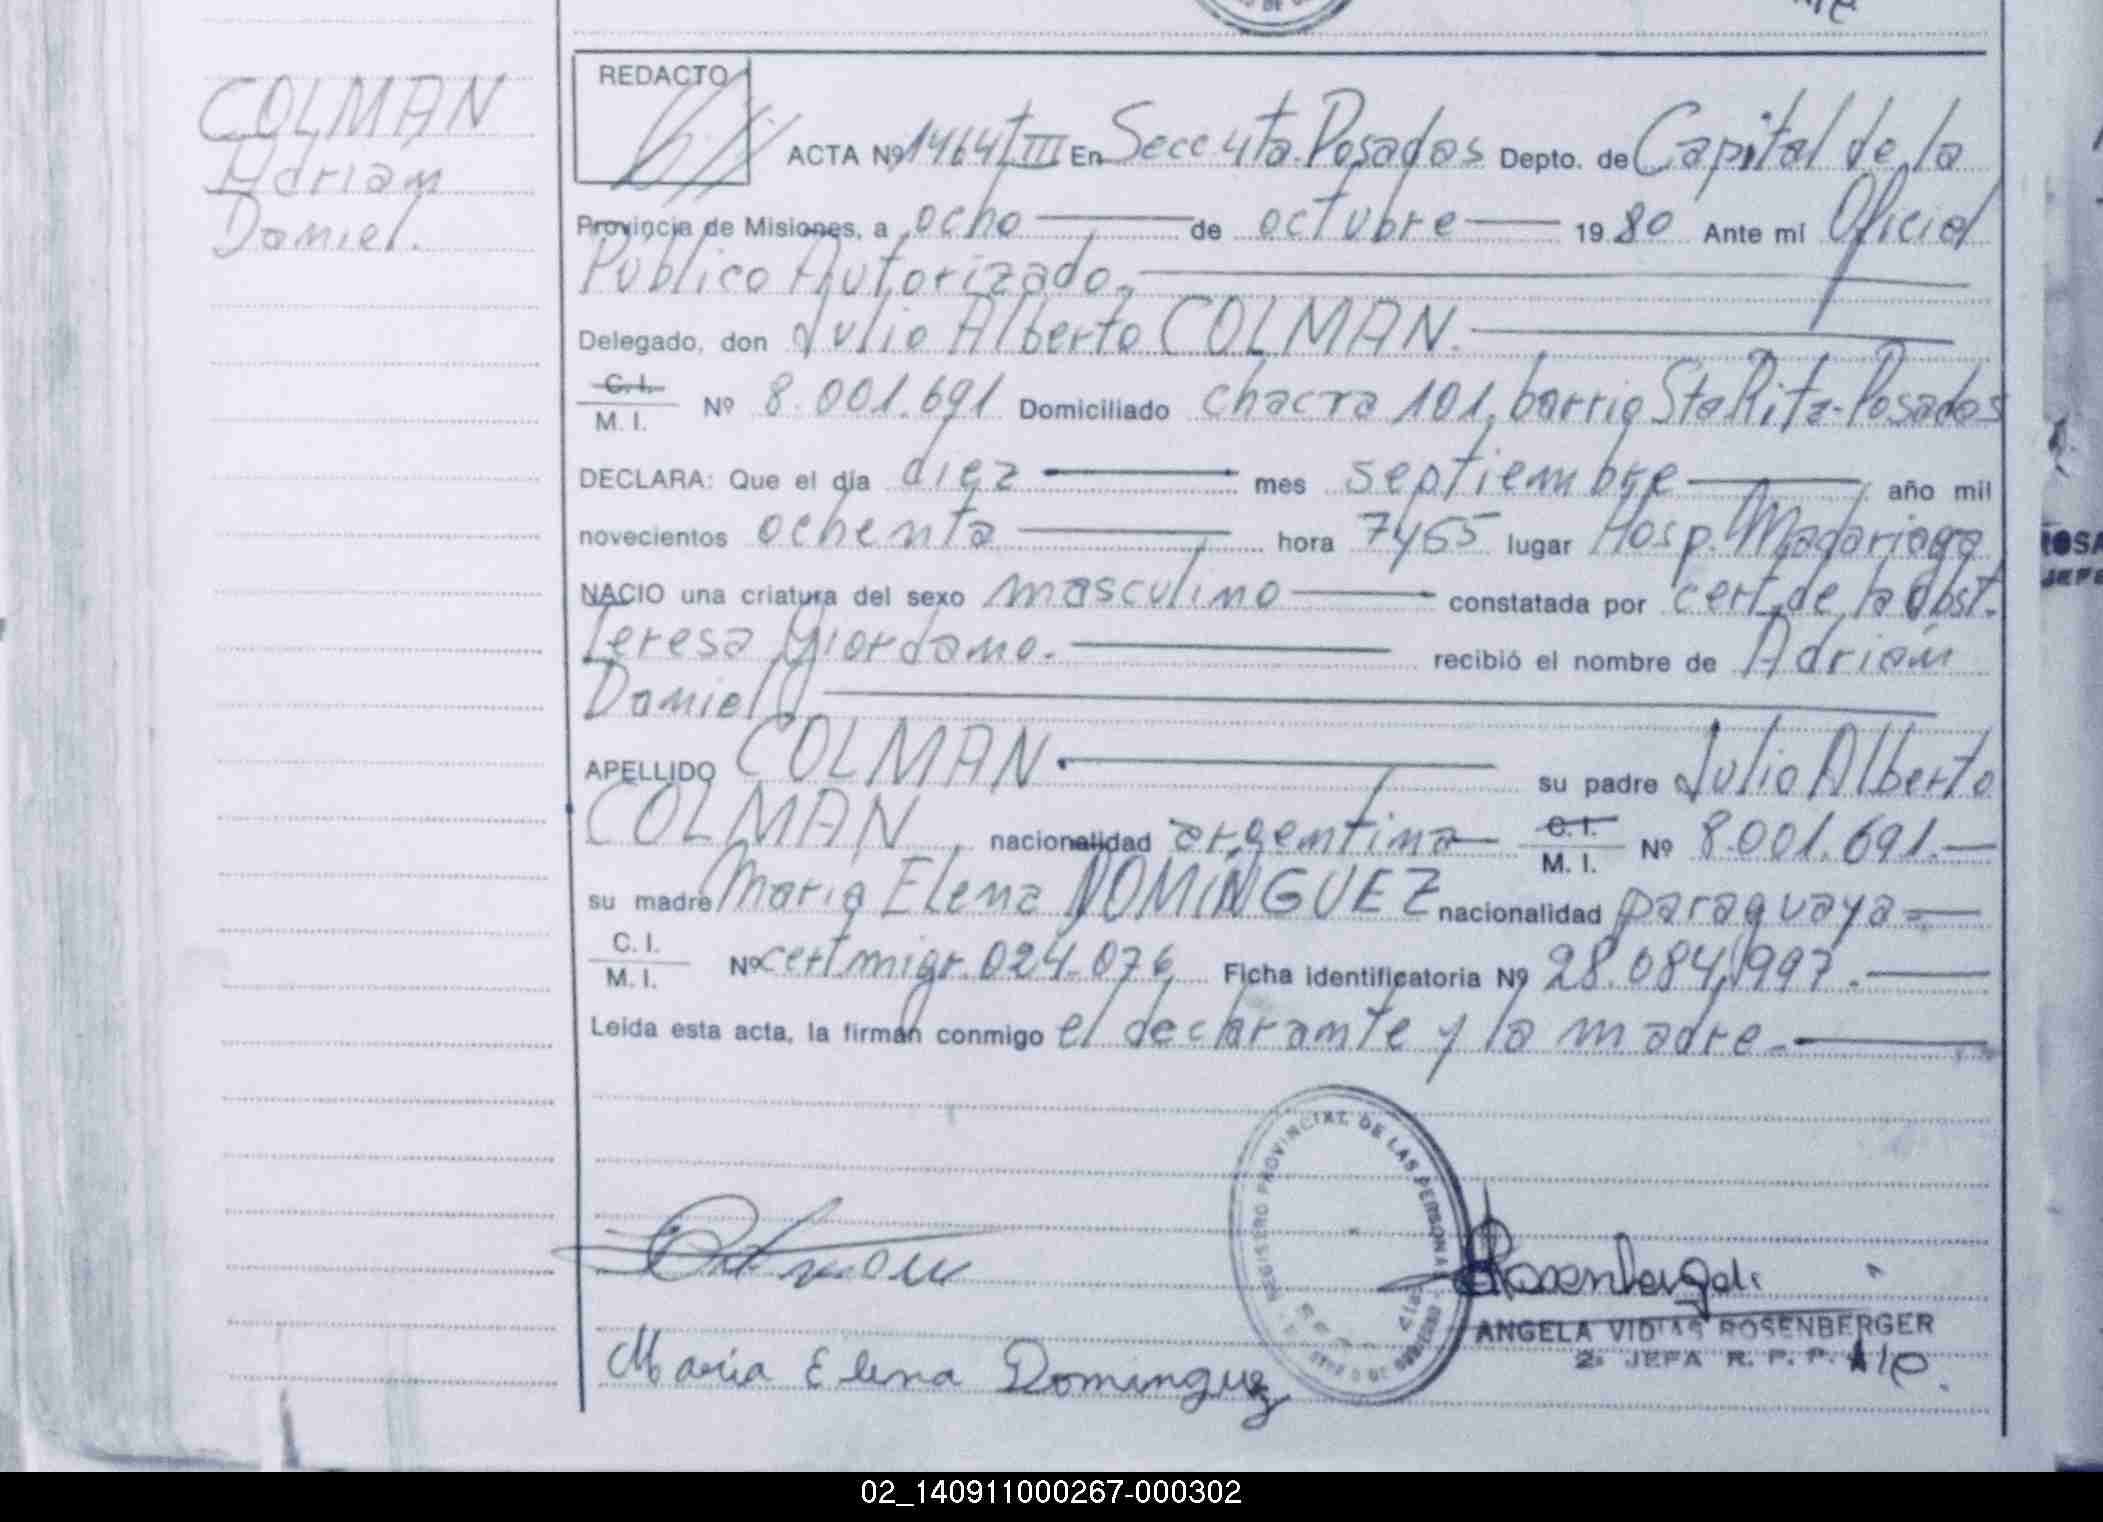 COLMAN
Adrian
Daniel.
REDACTO
ACTA Nº 1464 T III En Secc 4ta. Posadas Depto. de Capital de la
Provincia de Misiones, a ocho de octubre 1980 Ante mí Oficial
Público Autorizado.
Delegado, don Julio Alberto COLMAN.
C. I.
M. I. Nº 8.001.691 Domiciliado chacra 101, barrio Sta Rita-Posadas
DECLARA: Que el día diez mes septiembre año mil
novecientos ochenta hora lugar Hosp. Madariaga
NACIO una criatura del sexo masculino constatada por cert. de la obst.
Teresa Giordano. recibió el nombre de Adrián
Daniel
APELLIDO COLMAN su padre Julio Alberto
COLMAN nacionalidad argentina C. I. M. I. Nº 8.001.691.
su madre Maria Elena DOMINGUEZ nacionalidad paraguaya
C. I.
M. I. Nº cert migr. 024.076 Ficha identificatoria Nº 28.084.997.
Leída esta acta, la firman conmigo el declarante y la madre.
REGISTRO PROVINCIAL DE LAS PERSONAS
Rosenberger
ANGELA VIDIAS ROSENBERGER
2ª JEFA R. P. P.
Maria Elena Dominguez
ROSA
JEFE
02_140911000267-000302